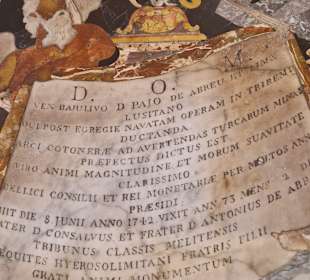 D. O. M.
VEN BAJULIVO D PAJO DE ABREU ET LIMA
LUSITANO
QUI POST EGREGIE NAVATAM OPERAM IN TRIREMI
DUCTANDA
ARCI COTONERÆ AD AVERTENDAS TURCARUM MINAS
PRÆFECTUS DICTUS EST
VIRO ANIMI MAGNITUDINE ET MORUM SUAVITATE
CLARISSIMO
BELLICI CONSILII ET REI MONETARIÆ PER MULTOS ANNOS
PRÆSIDI
OBIIT DIE 8 JUNII ANNO 1742 VIXIT ANN 73 MENS 2 D
FRATER D CONSALVUS ET FRATER D ANTONIUS DE ABREU
TRIBUNUS CLASSIS MELITENSIS
EQUITES HYEROSOLIMITANI FRATRIS FILII
GRATI ANIMI MONUMENTUM